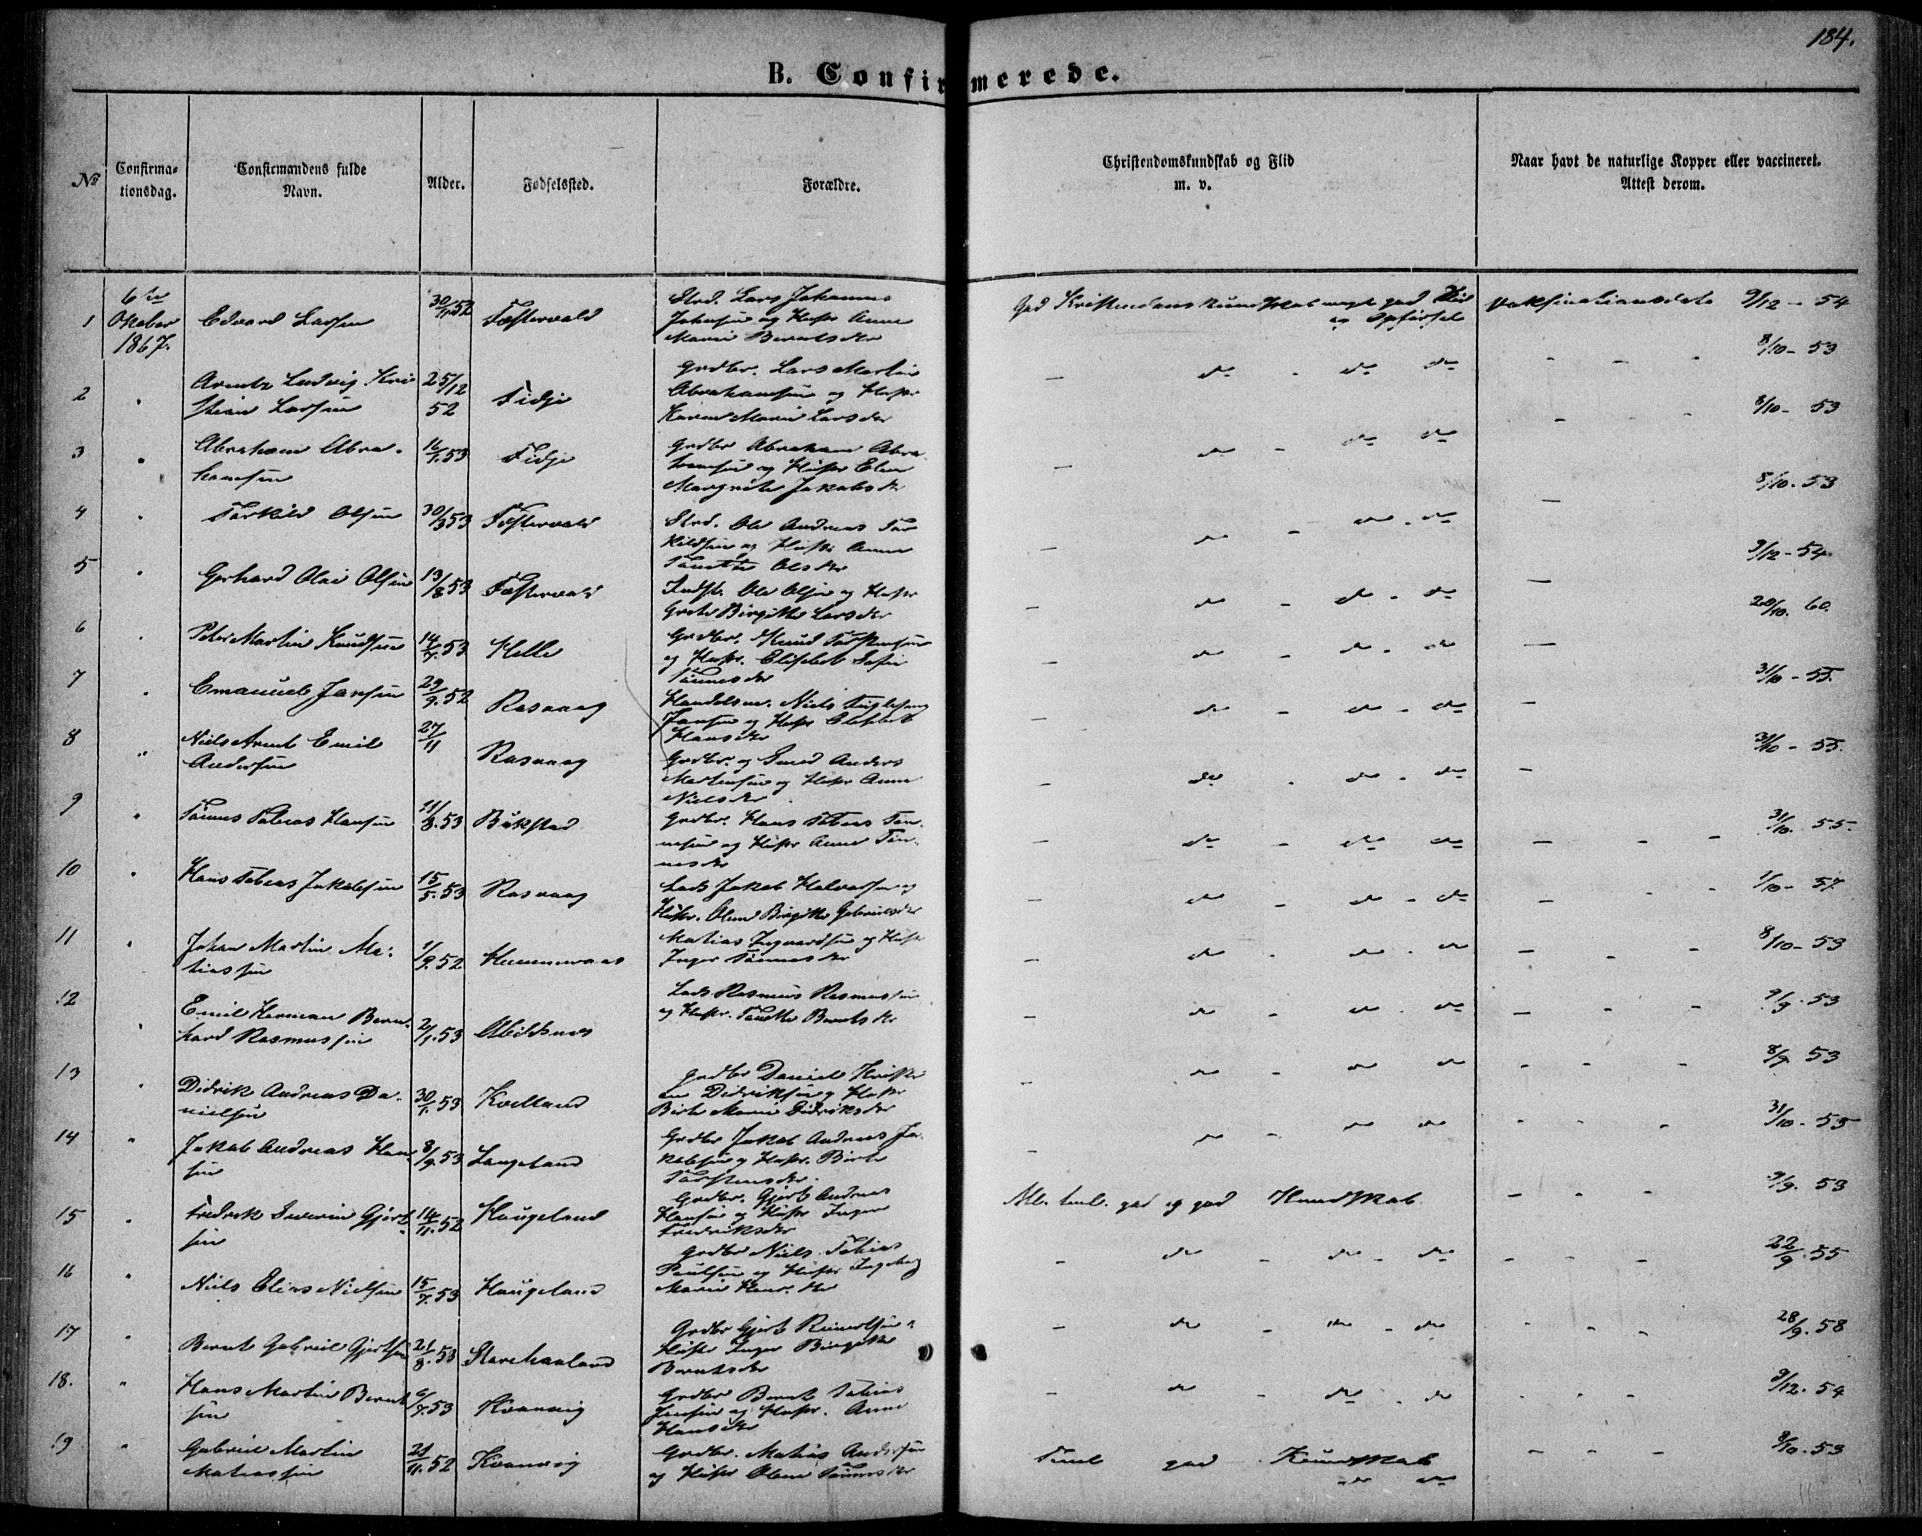 184.
B. Confirmerede.
№
Confirma-
tionsdag.
Confirmandens fulde
Navn.
Alder.
Fødselssted.
Forældre.
Christendomskundskab og Flid
m. v.
Naar havt de naturlige Kopper eller vaccineret.
Attest derom.
1 6te Oktober 1867. Edvard Larsen 52 Fæstervold
Lars Johannes
Johnsen og Hustr Anne
Marie Berntsdtr
God Kristendomskundskab meget god Flid
og Opførsel
9/12 - 54
2 " Arent Ludvig Kri
stian Larsen 25/12 52 Fidje
Grdbr. Lars Martin
Abrahamsen og Hustr
Karen Marie Larsdtr
do - do do 8/10 - 53
3 " Abraham Abra-
hamsen 16/1.53 Fidje
Grdbr Abraham Abra
hamsen og Hustr Elen
Margrete Jakobsdtr
do - do do 8/10 - 53
4 " Torkild Olsen 30/3 53 Fæstervold
Ole Andreas Tor
kildsen og Hustr Anne
Olsdtr
do - do - do 8/10. 53
5 " Gerhard Olai Olsen 13/8 53 Fæstervold
Indst. Ole Olsen og Hustr
Grete Birgitte Larsdtr
do - do - do 9/12 - 54
6 " Peter Martin Knudsen 14/7.53 Helle
Grdbr. Knud
og Hustr. Elisabet
Tønnesdtr
do - do - do 20/10. 60.
7 " Emanuel Jansen 29/9.52 Rasvaag
Handelsm. Niels
Jansen og Hustr
Hansdtr
do - do - do 31/10 - 55.
8 " Niels Arent Emil
Andersen 27/11 Rasvaag
Grdbr. og Smed Anders
Martinsen og Hustr Anne
Nielsdtr
do - do - do 31/10 - 55.
9 " Tønnes Tobias Hansen 11/8.53 Bukstad
Grdbr. Hans Tobias Tøn-
nesen og Hustr Anne Tøn-
nesdtr
do - do do 31/10. 55.
10 " Hans Tobias Jakobsen 15/5.53 Rasvaag
Lods Jakob Halvorsen og
Hustr. Olene Birgitte Gabrielsdtr
do - do - do 1/10 - 57.
11 " Johan Martin Ma-
tiassen 1/9.52
Matias Ingvardsen og Hustr
Inger Tønnesdtr
do - do - do 8/10 - 53
12 " Emil Herman Bern-
hard Rasmussen 2/1.53 Abildsnes
Lods Rasmus Rasmussen
og Hustr. Berntsdtr
do - do - do 9/9. 53
13 " Didrik Andreas Da-
nielsen 30/1.53 Kvelland
Grdbr Daniel Kristi
an Didriksen og Hustr
Birte Marie Didriksdtr
do - do do 8/9. 53
14 " Jakob Andreas Han
sen 8/9.53 Langeland
Grdbr Jakob Andreas Ja-
kobsen og Hustr. Birte
Torstensdtr.
do - do do 31/10 - 55
15 " Fredrik Severin Gjert
sen 14/11.52 Haugeland
Grdbr. Gjert Andreas
Hansen og Hustr Inger
Fredriksdtr
god og god Kundskab 9/9. 53
16 " Niels Elias Nielsen 15/7.53 Haugeland
Grdbr Niels Tobias
Paulsen og Hustr Ingeborg
Marie
do - do - do 22/9 - 55
17 " Bernt Gabriel Gjertsen 21/8.53
Grdbr Gjert
Hustr Inger Birgitte
Berntsdtr
do - do - do 28/9. 58
18. " Hans Martin Bernt
sen 53 Kvanvig
Grdbr Bernt Tobias
Jensen og Hustr. Anne
Hansdtr
do do - do 9/12. 54
19 " Gabriel Martin
Matiassen 21/11.52 Kvanvig
Grdbr. Matias Andersen
og Hustr Olene Tønnesdtr
god Kundskab
do do 8/10. 53